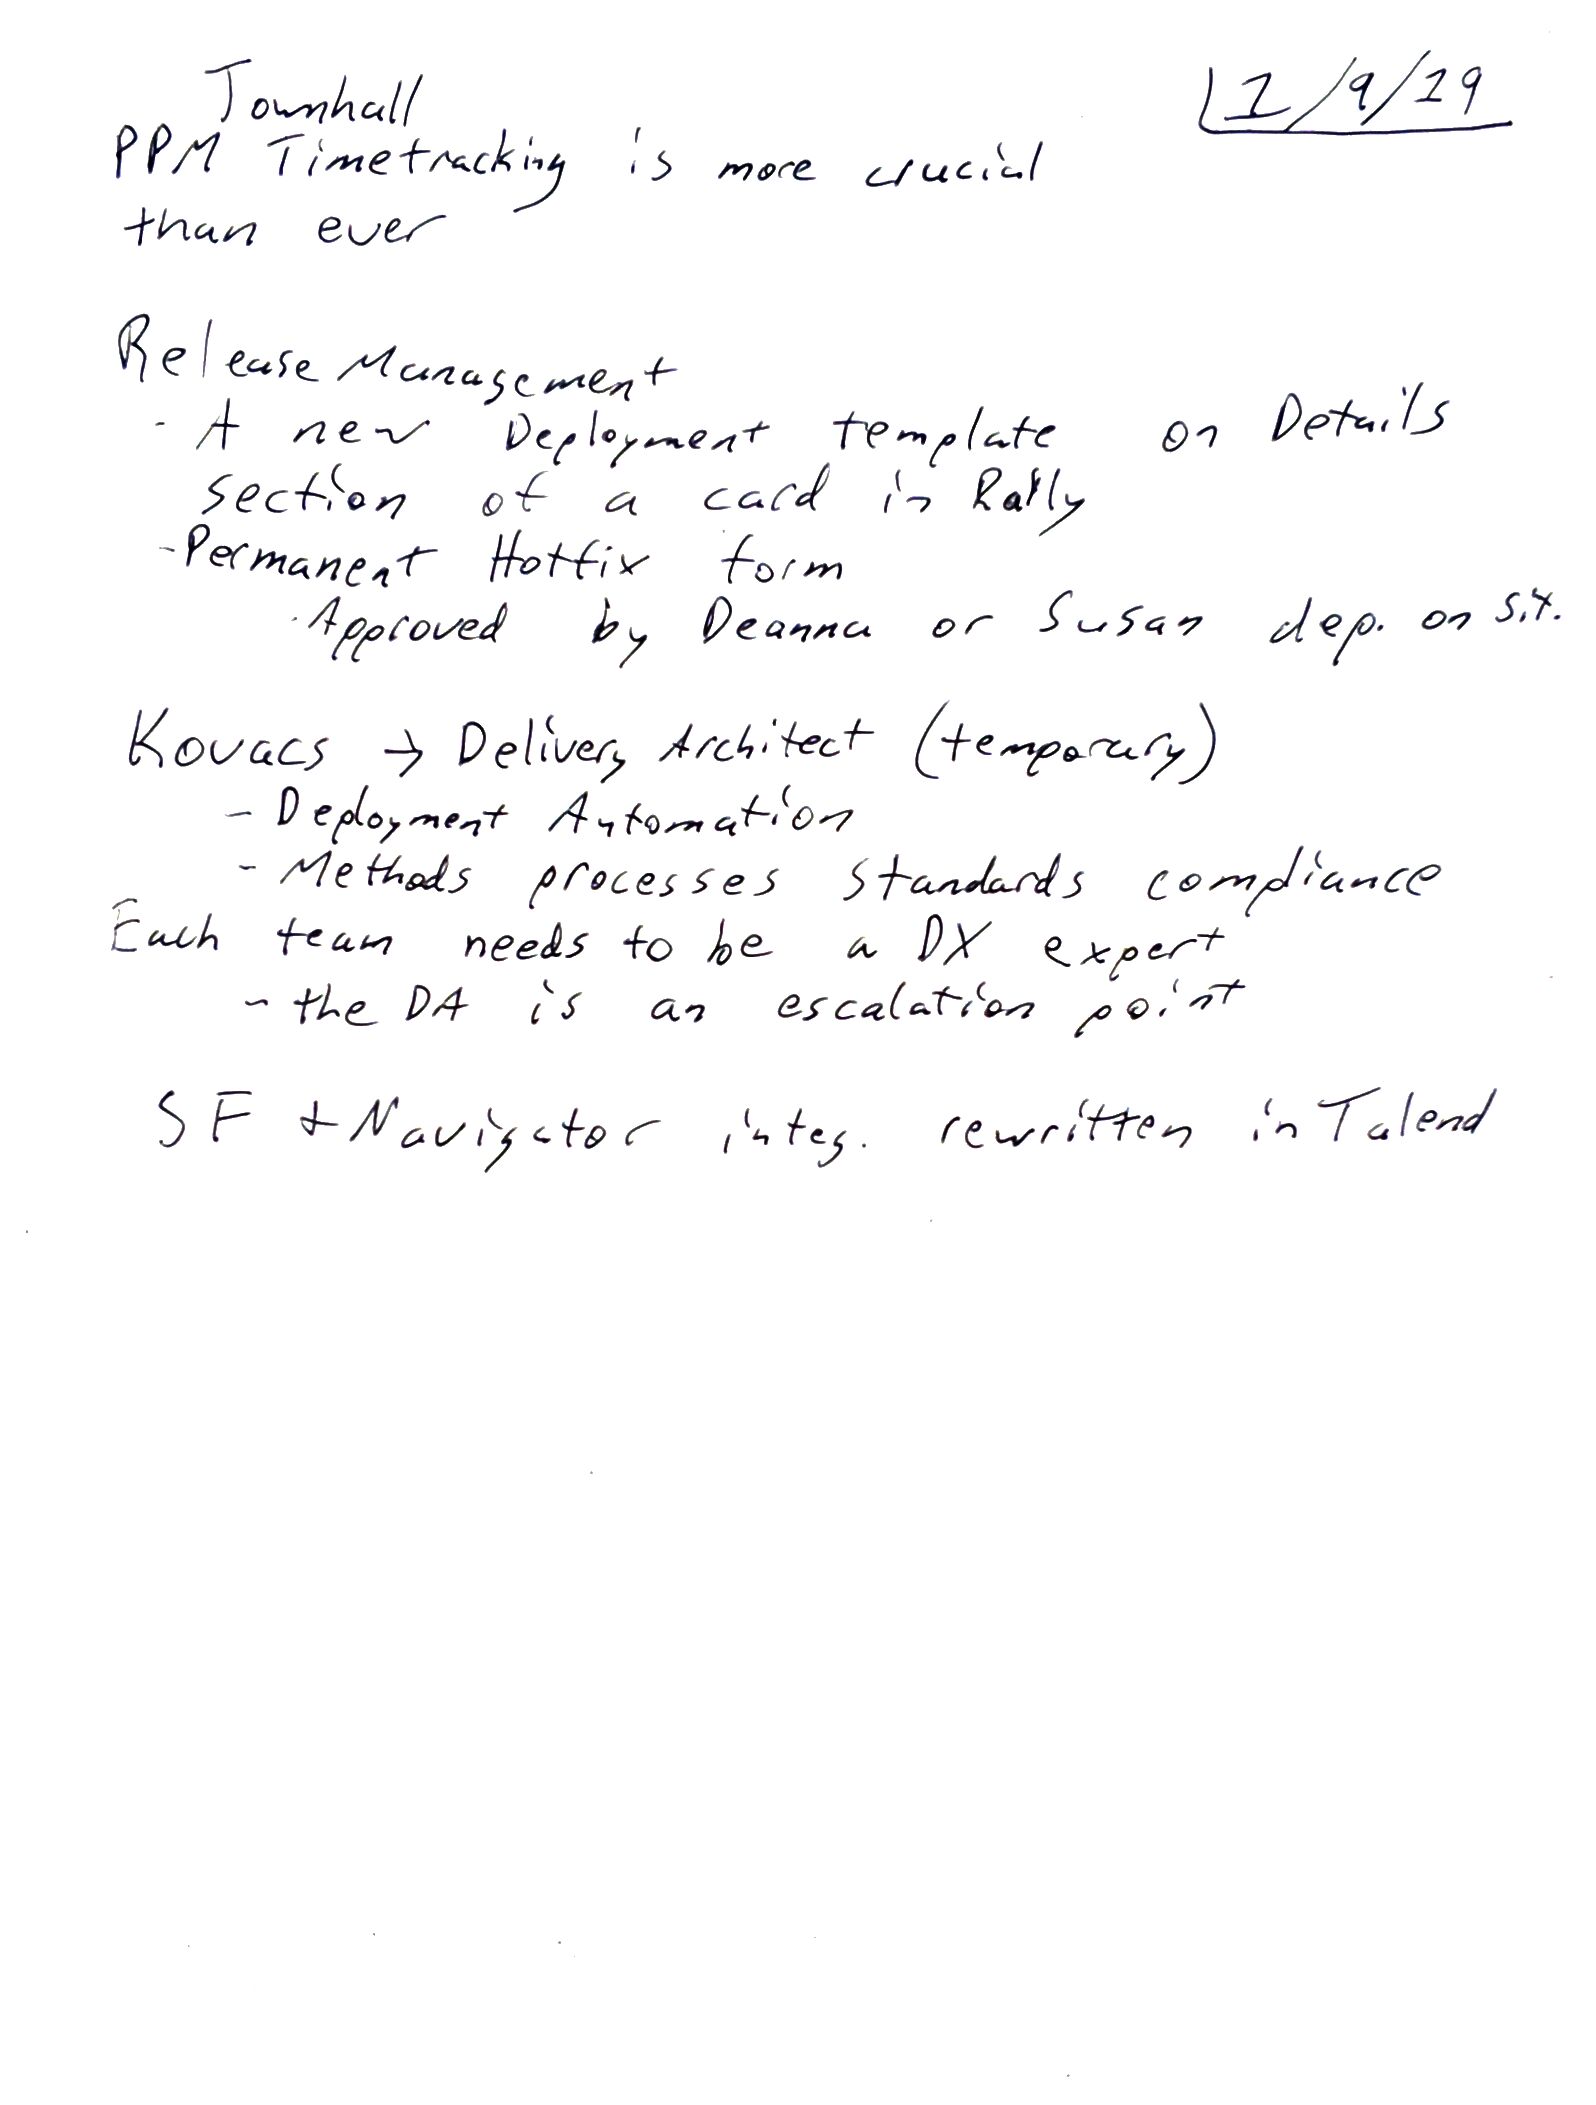 Townhall
1/9/19
PPM Timetracking is more crucial
than ever
Release Management
- A new Deployment template on Details
section of a card in Rally
- Permanent Hotfix form
· Approved by Deanna or Susan dep. on sit.
Kovacs → Delivery Architect (temporary)
- Deployment Automation
- Methods processes standards compliance
Each team needs to be a DX expert
- the DA is an escalation point
SF + Navigator integ. rewritten in Talend